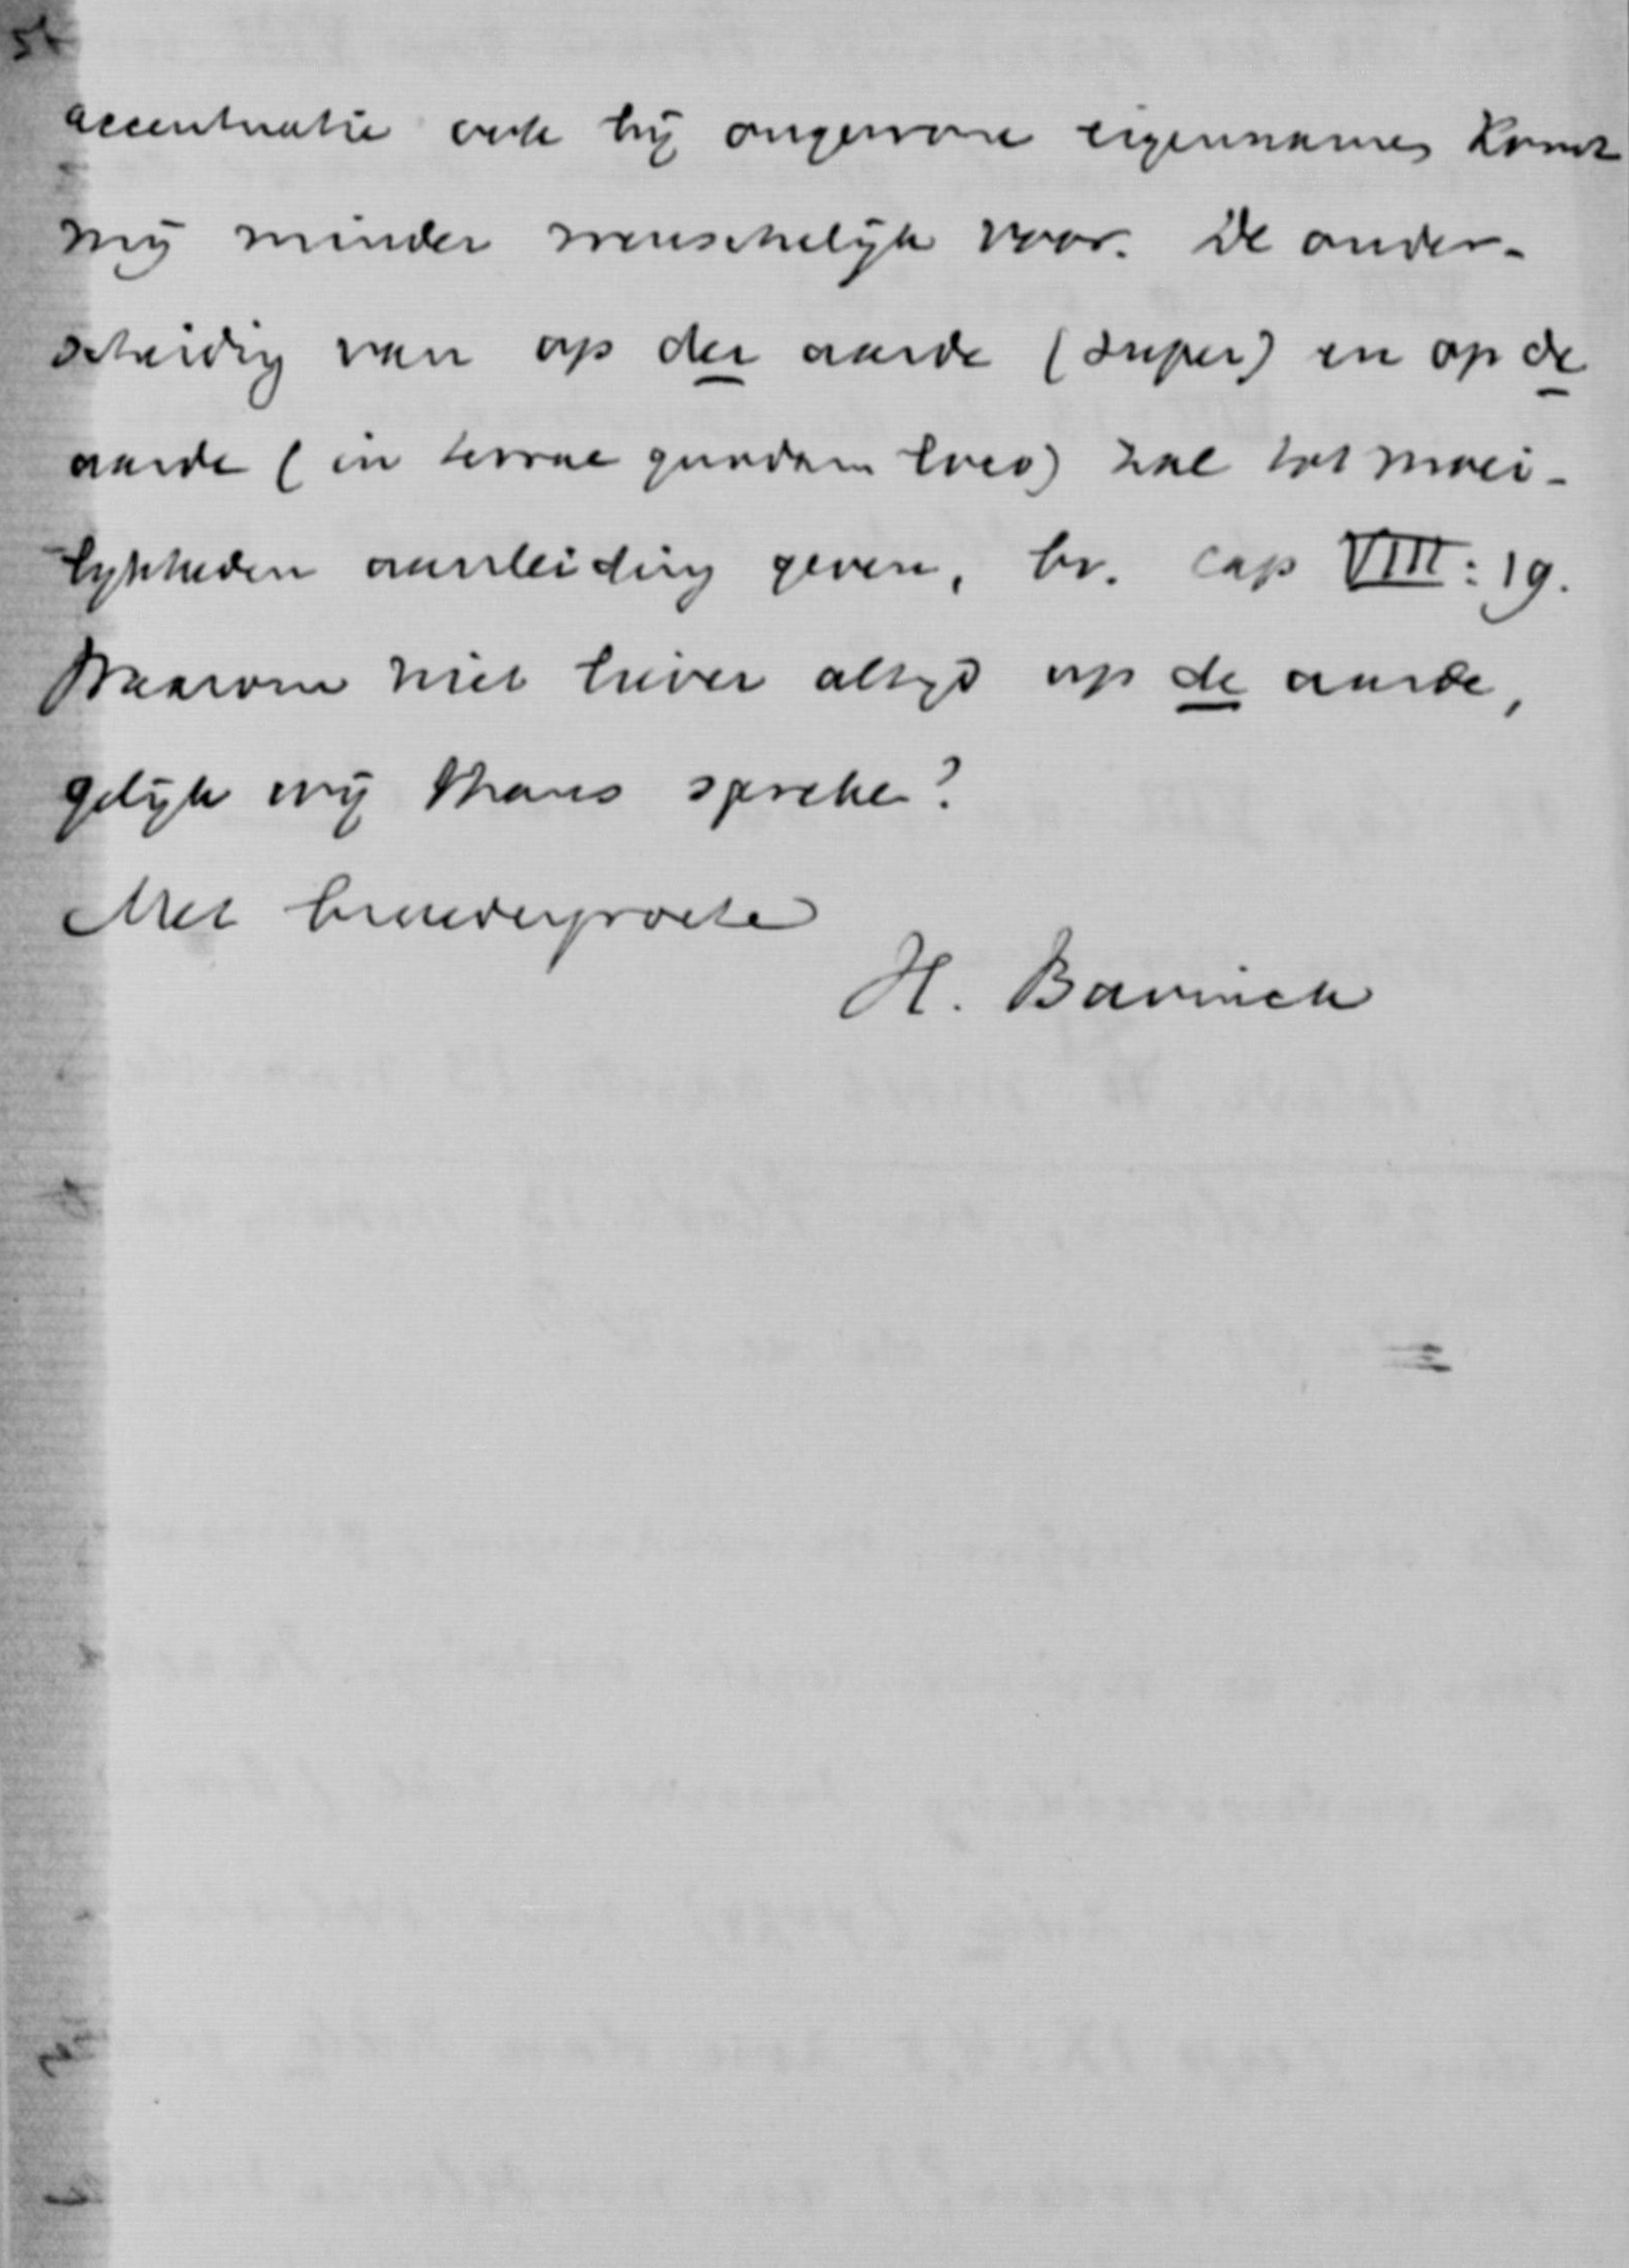 accentuatie ook bij ongewone eigennamen komt
mij minder wenschelijk voor. De onder-
scheidig van op der aarde (super) en op de
aarde (in terrae quodam loco) zal tot moei-
lijkheden aanleiding geven, bv. cap VIII: 19.
Waarom niet liever altijd op de aarde,
gelijk wij thans spreken?
Met broedergroete
H. Bavinck